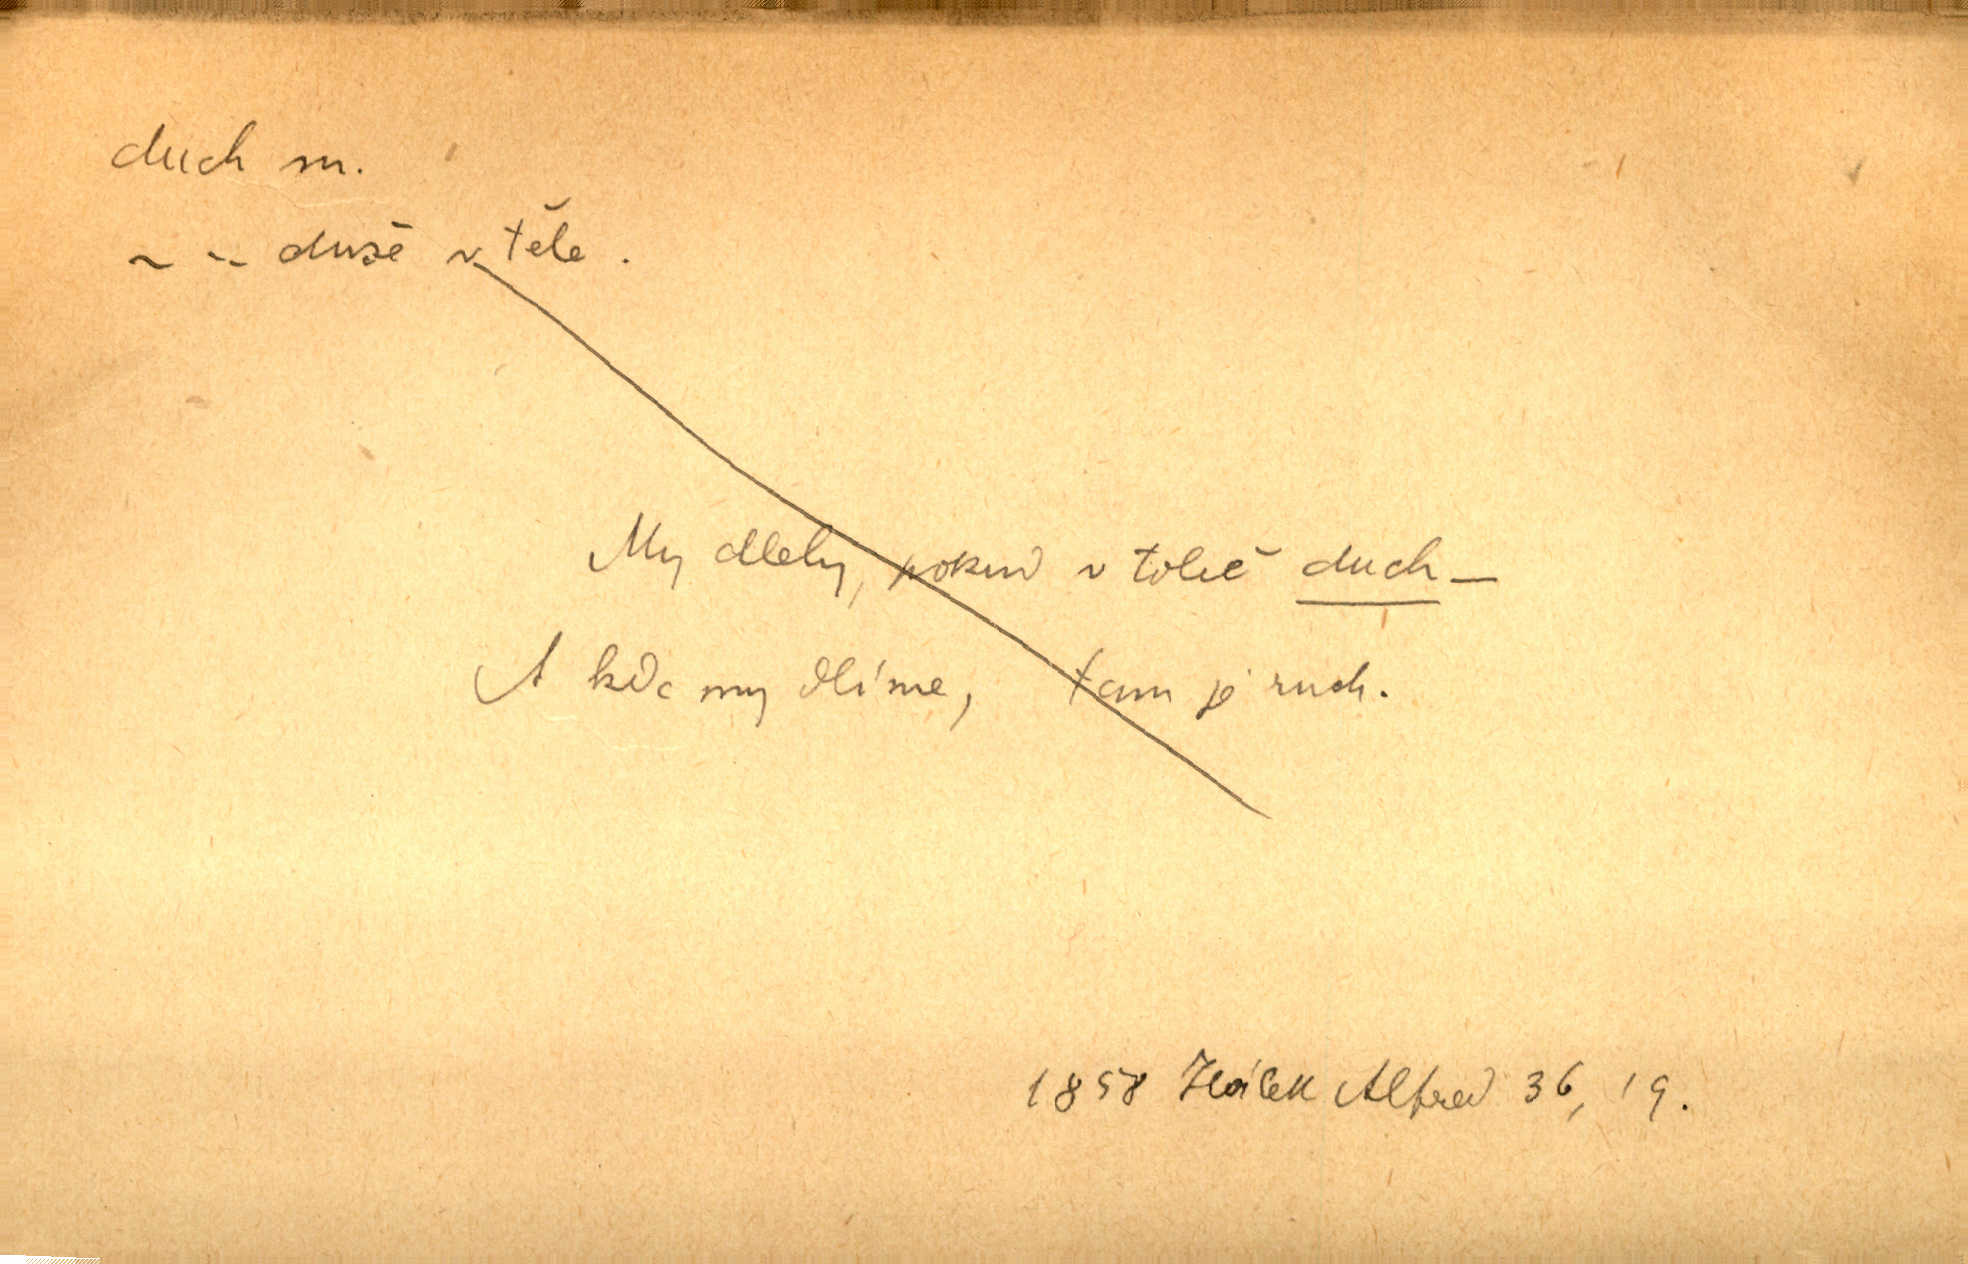 duch m.
~ -- duše v těle.
My dlely, pokud v tobě duch —
A kde my dlíme, tam je ruch.
1858 Hálek Alfred 36, 19.